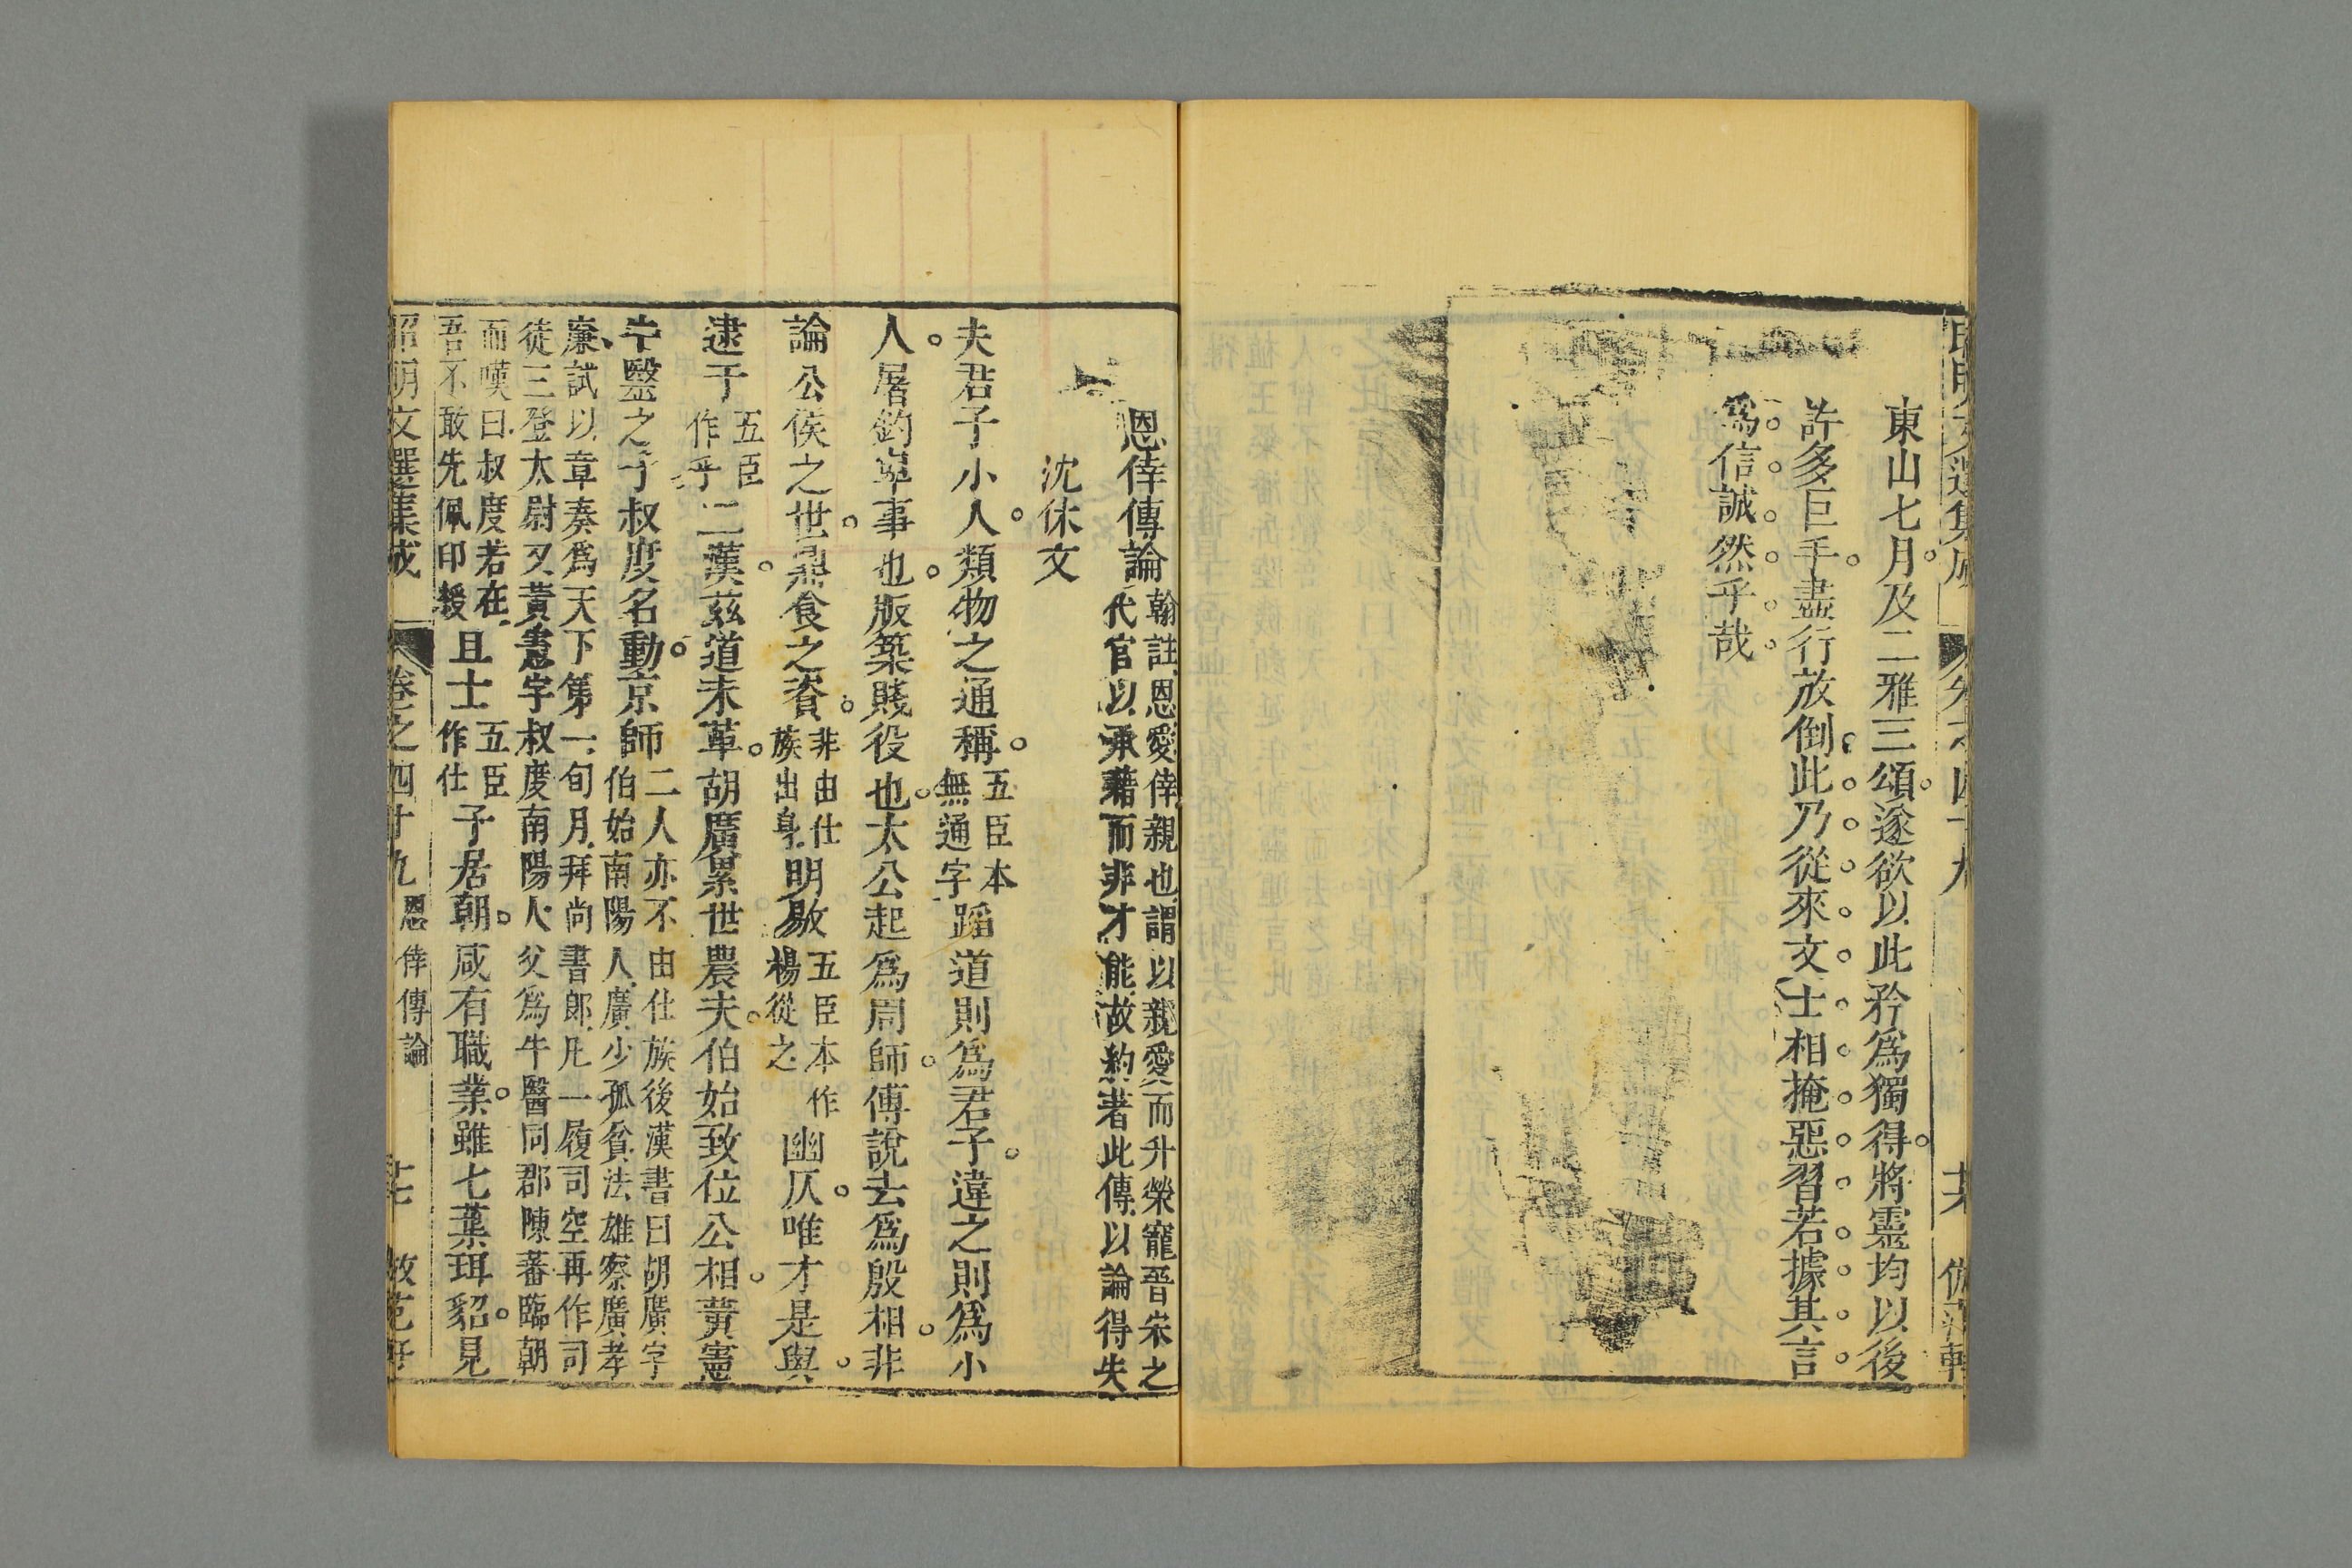 東山七月及二雅三頌遂欲以此矜爲獨得將靈均以後
許多巨手盡行放倒此乃從來文士相掩惡習若據其言
爲信誠然乎哉
恩倖傳論
翰註恩愛倖親也謂以親愛而升榮寵晉宋之
代官以承藉而非才能故約著此傳以論得失
沈休文
夫君子小人類物之通稱
五臣本
無通字
蹈道則爲君子違之則爲小
人屠釣卑事也版築賤役也太公起爲周師傅說去爲殷相非
論公侯之世鼎食之資
非由仕
族出身
明敭
五臣本作
楊從之
幽仄唯才是與
逮于
五臣
作乎
二漢茲道未革胡廣累世農夫伯始致位公相黃憲
牛毉之子叔度名動京師
二人亦不由仕族後漢書曰胡廣字
伯始南陽人廣少孤貧法雄察廣孝
廉試以章奏爲天下第一旬月拜尚書郎凡一履司空再作司
徒三登太尉又黃憲字叔度南陽人父爲牛醫同郡陳蕃臨朝
而嘆曰叔度若在
吾不敢先佩印綬
且士
五臣
作仕
子居朝咸有職業雖七葉珥貂見
昭明文選集成 卷之四十九 恩倖傳論